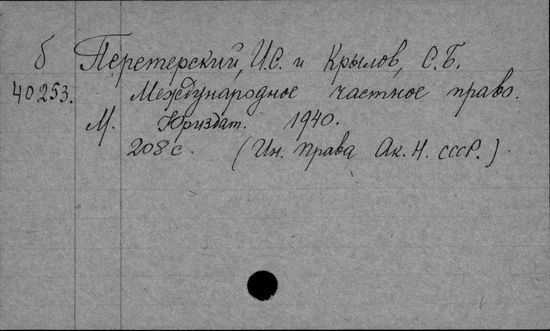 б Перетерский, И.С. и Крылов, С.Б.
40253. Международное частное право.
М. Юриздат. 1940.
208 с. (Ин. права Ак. Н. СССР.)